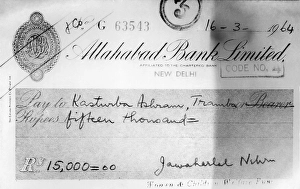 & Co. G 63543 16-3-1964
Allahabad Bank Limited,
AFFILIATED TO THE CHARTERED BANK
NEW DELHI
CODE NO.
Pay to Kasturba Ashram, Trambau Bearer
Rupees fifteen thousand =
Rs 15,000=00
Jawaharlal Nehru